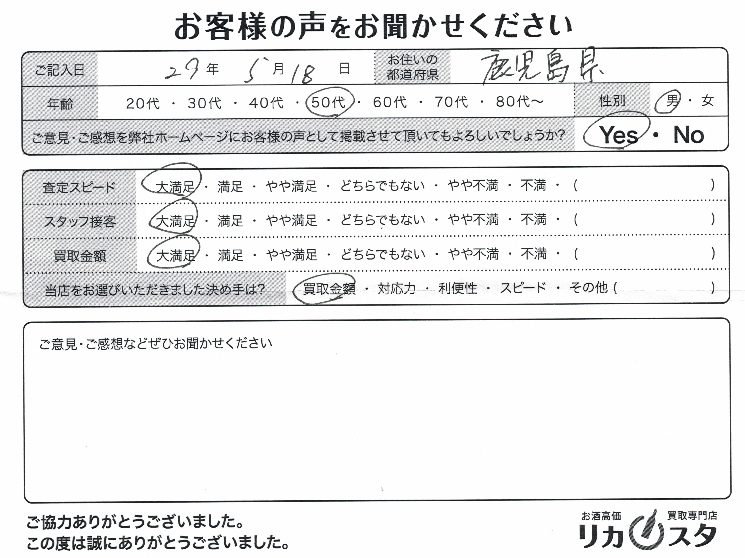 お客様の声をお聞かせください
ご記入日 29年 5月18日 お住いの都道府県 鹿児島県
年齢 20代 ・ 30代 ・ 40代 ・ 50代 ・ 60代 ・ 70代 ・ 80代〜 性別 男 ・ 女
ご意見・ご感想を弊社ホームページにお客様の声として掲載させて頂いてもよろしいでしょうか? Yes ・ No
査定スピード 大満足 ・ 満足 ・ やや満足 ・ どちらでもない ・ やや不満 ・ 不満 ・ ( )
スタッフ接客 大満足 ・ 満足 ・ やや満足 ・ どちらでもない ・ やや不満 ・ 不満 ・ ( )
買取金額 大満足 ・ 満足 ・ やや満足 ・ どちらでもない ・ やや不満 ・ 不満 ・ ( )
当店をお選びいただきました決め手は? 買取金額 ・ 対応力 ・ 利便性 ・ スピード ・ その他 ( )
ご意見・ご感想などぜひお聞かせください
ご協力ありがとうございました。
この度は誠にありがとうございました。
お酒高価 買取専門店
リカスタ